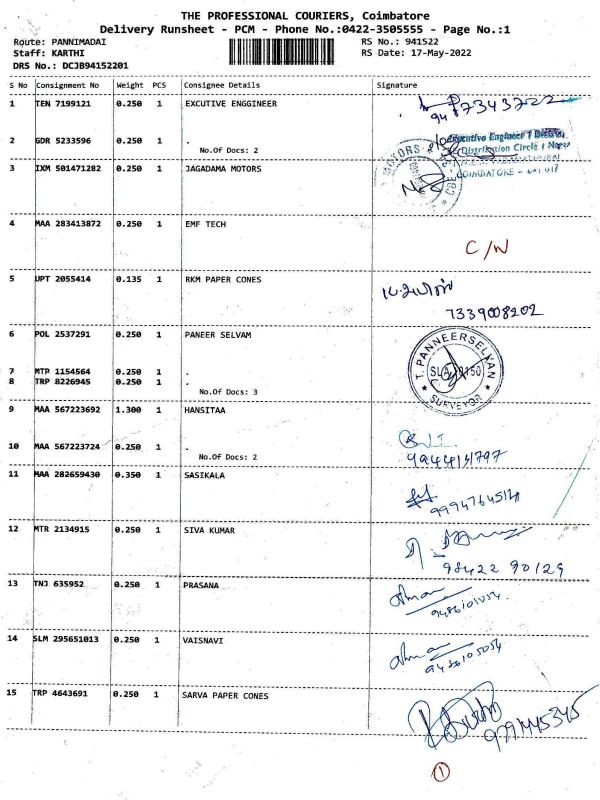 THE PROFESSIONAL COURIERS, Coimbatore
Delivery Runsheet - PCM - Phone No.:0422-3505555 - Page No.:1
Route: PANNIMADAI RS No.: 941522
Staff: KARTHI RS Date: 17-May-2022
DRS No.: DCJB94152201
S No Consignment No Weight PCS Consignee Details Signature
1 TEN 7199121 0.250 1 EXCUTIVE ENGGINEER
2 GDR 5233596 0.250 1 .
Executive Engineer
Distribution Circle / North
No.Of Docs: 2
3 IXM 501471282 0.250 1 JAGADAMA MOTORS
MOTORS
COIMBATORE
4 MAA 283413872 0.250 1 EMF TECH
C/N
5 UPT 2055414 0.135 1 RKM PAPER CONES
7339008202
6 POL 2537291 0.250 1 PANEER SELVAM
T. PANNEERSELVAN
SURVEYOR
7 MTP 1154564 0.250 1 .
8 TRP 8226945 0.250 1 .
No.Of Docs: 3
9 MAA 567223692 1.300 1 HANSITAA
10 MAA 567223724 0.250 1 .
No.Of Docs: 2
11 MAA 282659430 0.350 1 SASIKALA
12 MTR 2134915 0.250 1 SIVA KUMAR
98422 90129
13 TNJ 635952 0.250 1 PRASANA
14 SLM 295651013 0.250 1 VAISNAVI
9486105054
15 TRP 4643691 0.250 1 SARVA PAPER CONES
9791445345
1